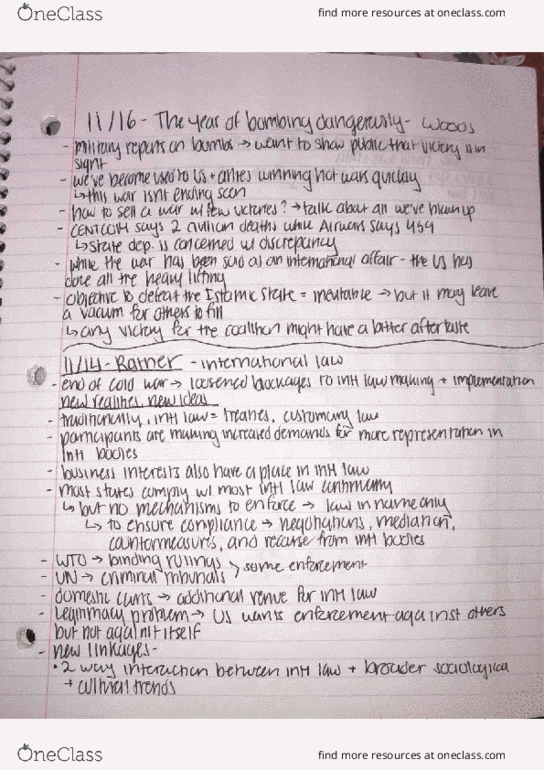 OneClass
find more resources at oneclass.com
11/16 - The year of bombing dangerously - Woods
- military reports on bombs → want to show public that victory is in
sight
- we've become used to US + allies winning hot wars quickly
↳ this war isnt ending soon
- how to sell a war w/ few victories? → talk about all we've blown up
- CENTCOM says 2 civilian deaths while Airwars says 459
↳ state dep. is concerned w/ discrepancy
- while the war has been sold as an international affair - the US has
done all the heavy lifting
- objective to defeat the Islamic State = inevitable → but it may leave
a vacuum for others to fill
↳ any victory for the coalition might have a bitter aftertaste
11/14 - Ratner - international law
- end of cold war → loosened blockages to intl law making + implementation
new realities, new ideas
- traditionally, intl law = treaties, customary law
- participants are making increased demands for more representation in
intl bodies
- business interests also have a place in intl law
- most states comply w/ most intl law continually
↳ but no mechanisms to enforce → law in name only
↳ to ensure compliance → negotiations, mediation,
countermeasures, and recourse from intl bodies
- WTO → binding rulings > some enforcement
- UN → criminal tribunals
- domestic courts → additional venue for intl law
- legitimacy problem → US wants enforcement against others
but not against itself
- new linkages -
• 2 way interaction between intl law + broader sociological
+ cultural trends
OneClass
find more resources at oneclass.com